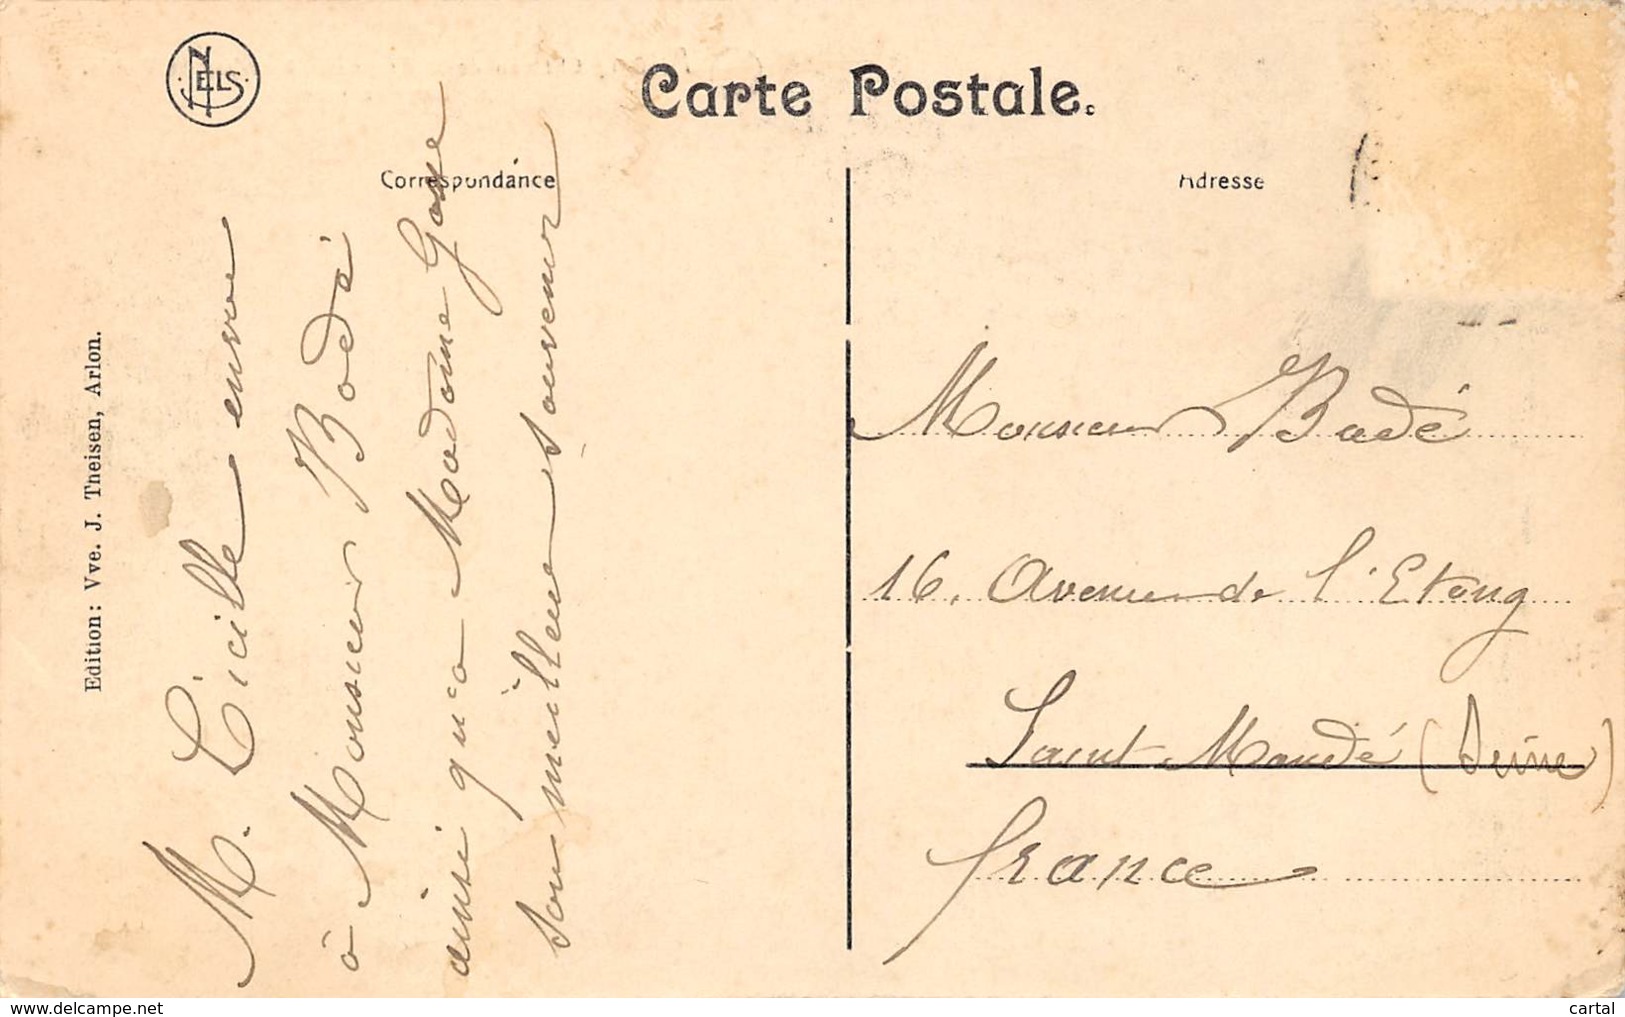 NELS
Carte Postale.
Correspondance
Adresse
Edition: Vve. J. Theisen, Arlon.
M. Cécille envoie
à Monsieur Badé
ainsi qu'à Madame Gosse
son meilleur souvenir
Monsieur Badé
16. Avenue de l'Etang
Saint-Mandé (Seine)
france
www.delcampe.net
cartal